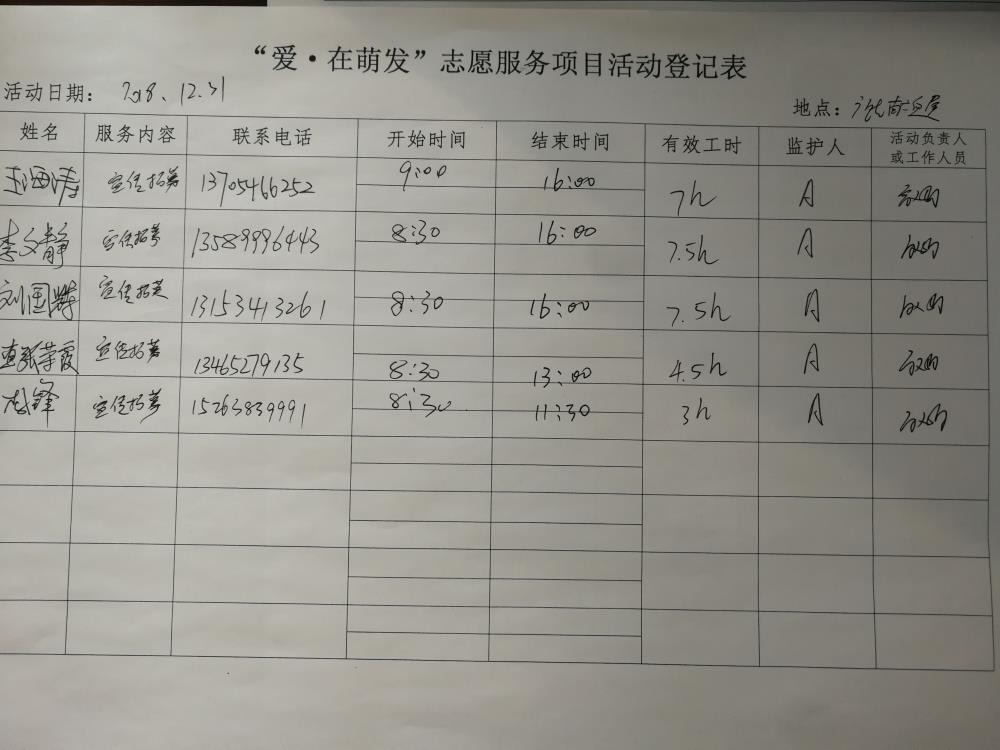 “爱·在萌发”志愿服务项目活动登记表
活动日期： 2018、12.31
地点：
姓名 服务内容 联系电话 开始时间 结束时间 有效工时 监护人 活动负责人或工作人员
王海涛 宣传招募 13705466252 9:00 16:00 7h A
李文静 宣传招募 13589996443 8:30 16:00 7.5h A
刘国辉 宣传招募 13153413261 8:30 16:00 7.5h A
张荣霞 宣传招募 13465279135 8:30 13:00 4.5h A
宣传招募 15263839991 8:30 11:30 3h A